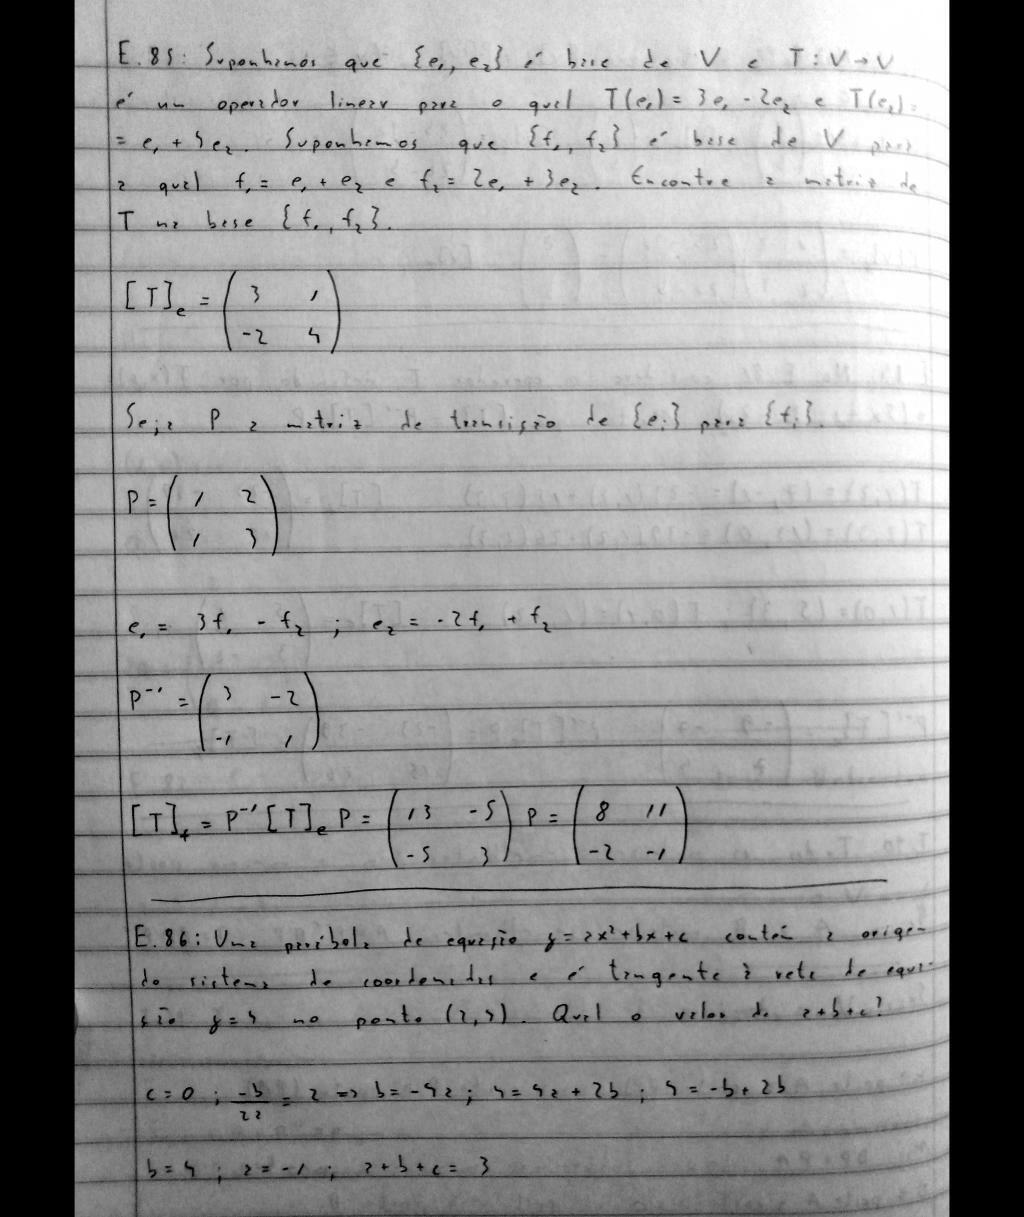 E.85: Suponhamos que {e₁, e₂} é base de V e T: V→V
é um operador linear para o qual T(e₁) = 3e₁ - 2e₂ e T(e₂) =
= e₁ + 4e₂. Suponhamos que {f₁, f₂} é base de V para
a qual f₁ = e₁ + e₂ e f₂ = 2e₁ + 3e₂. Encontre a matriz de
T na base {f₁, f₂}.
[T]ₑ = ( 3 1
-2 4 )
Seja P a matriz de transição de {eᵢ} para {fᵢ}.
P = ( 1 2
1 3 )
e₁ = 3f₁ - f₂ ; e₂ = -2f₁ + f₂
P⁻¹ = ( 3 -2
-1 1 )
[T]_f = P⁻¹ [T]ₑ P = ( 13 -5 ) P = ( 8 11
-5 3 -2 -1 )
E.86: Uma parábola de equação y = ax² + bx + c contém a origem
do sistema de coordenadas e é tangente à reta de equa-
ção y = 4 no ponto (2,4). Qual o valor de a+b+c?
c = 0 ; -b/2a = 2 => b = -4a ; 4 = 4a + 2b ; 4 = -b + 2b
b = 4 ; a = -1 ; a + b + c = 3